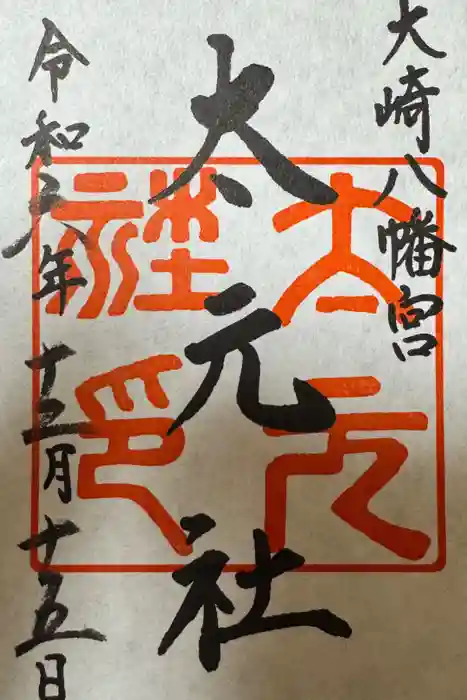 大崎八幡宮
太元社
令和六年十二月十五日
太元
社印